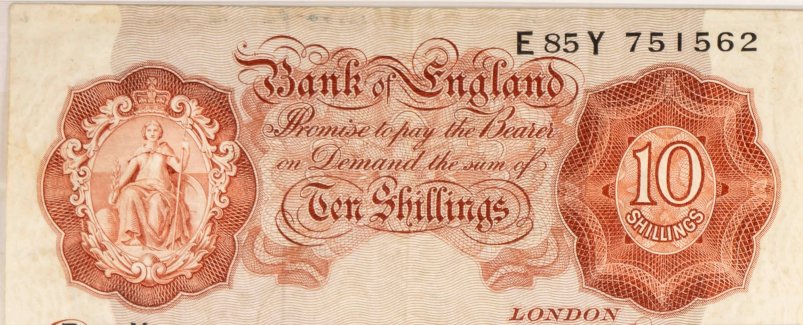 E 85 Y 751562
Bank of England
Promise to pay the Bearer
on Demand the sum of
Ten Shillings
10
SHILLINGS
LONDON